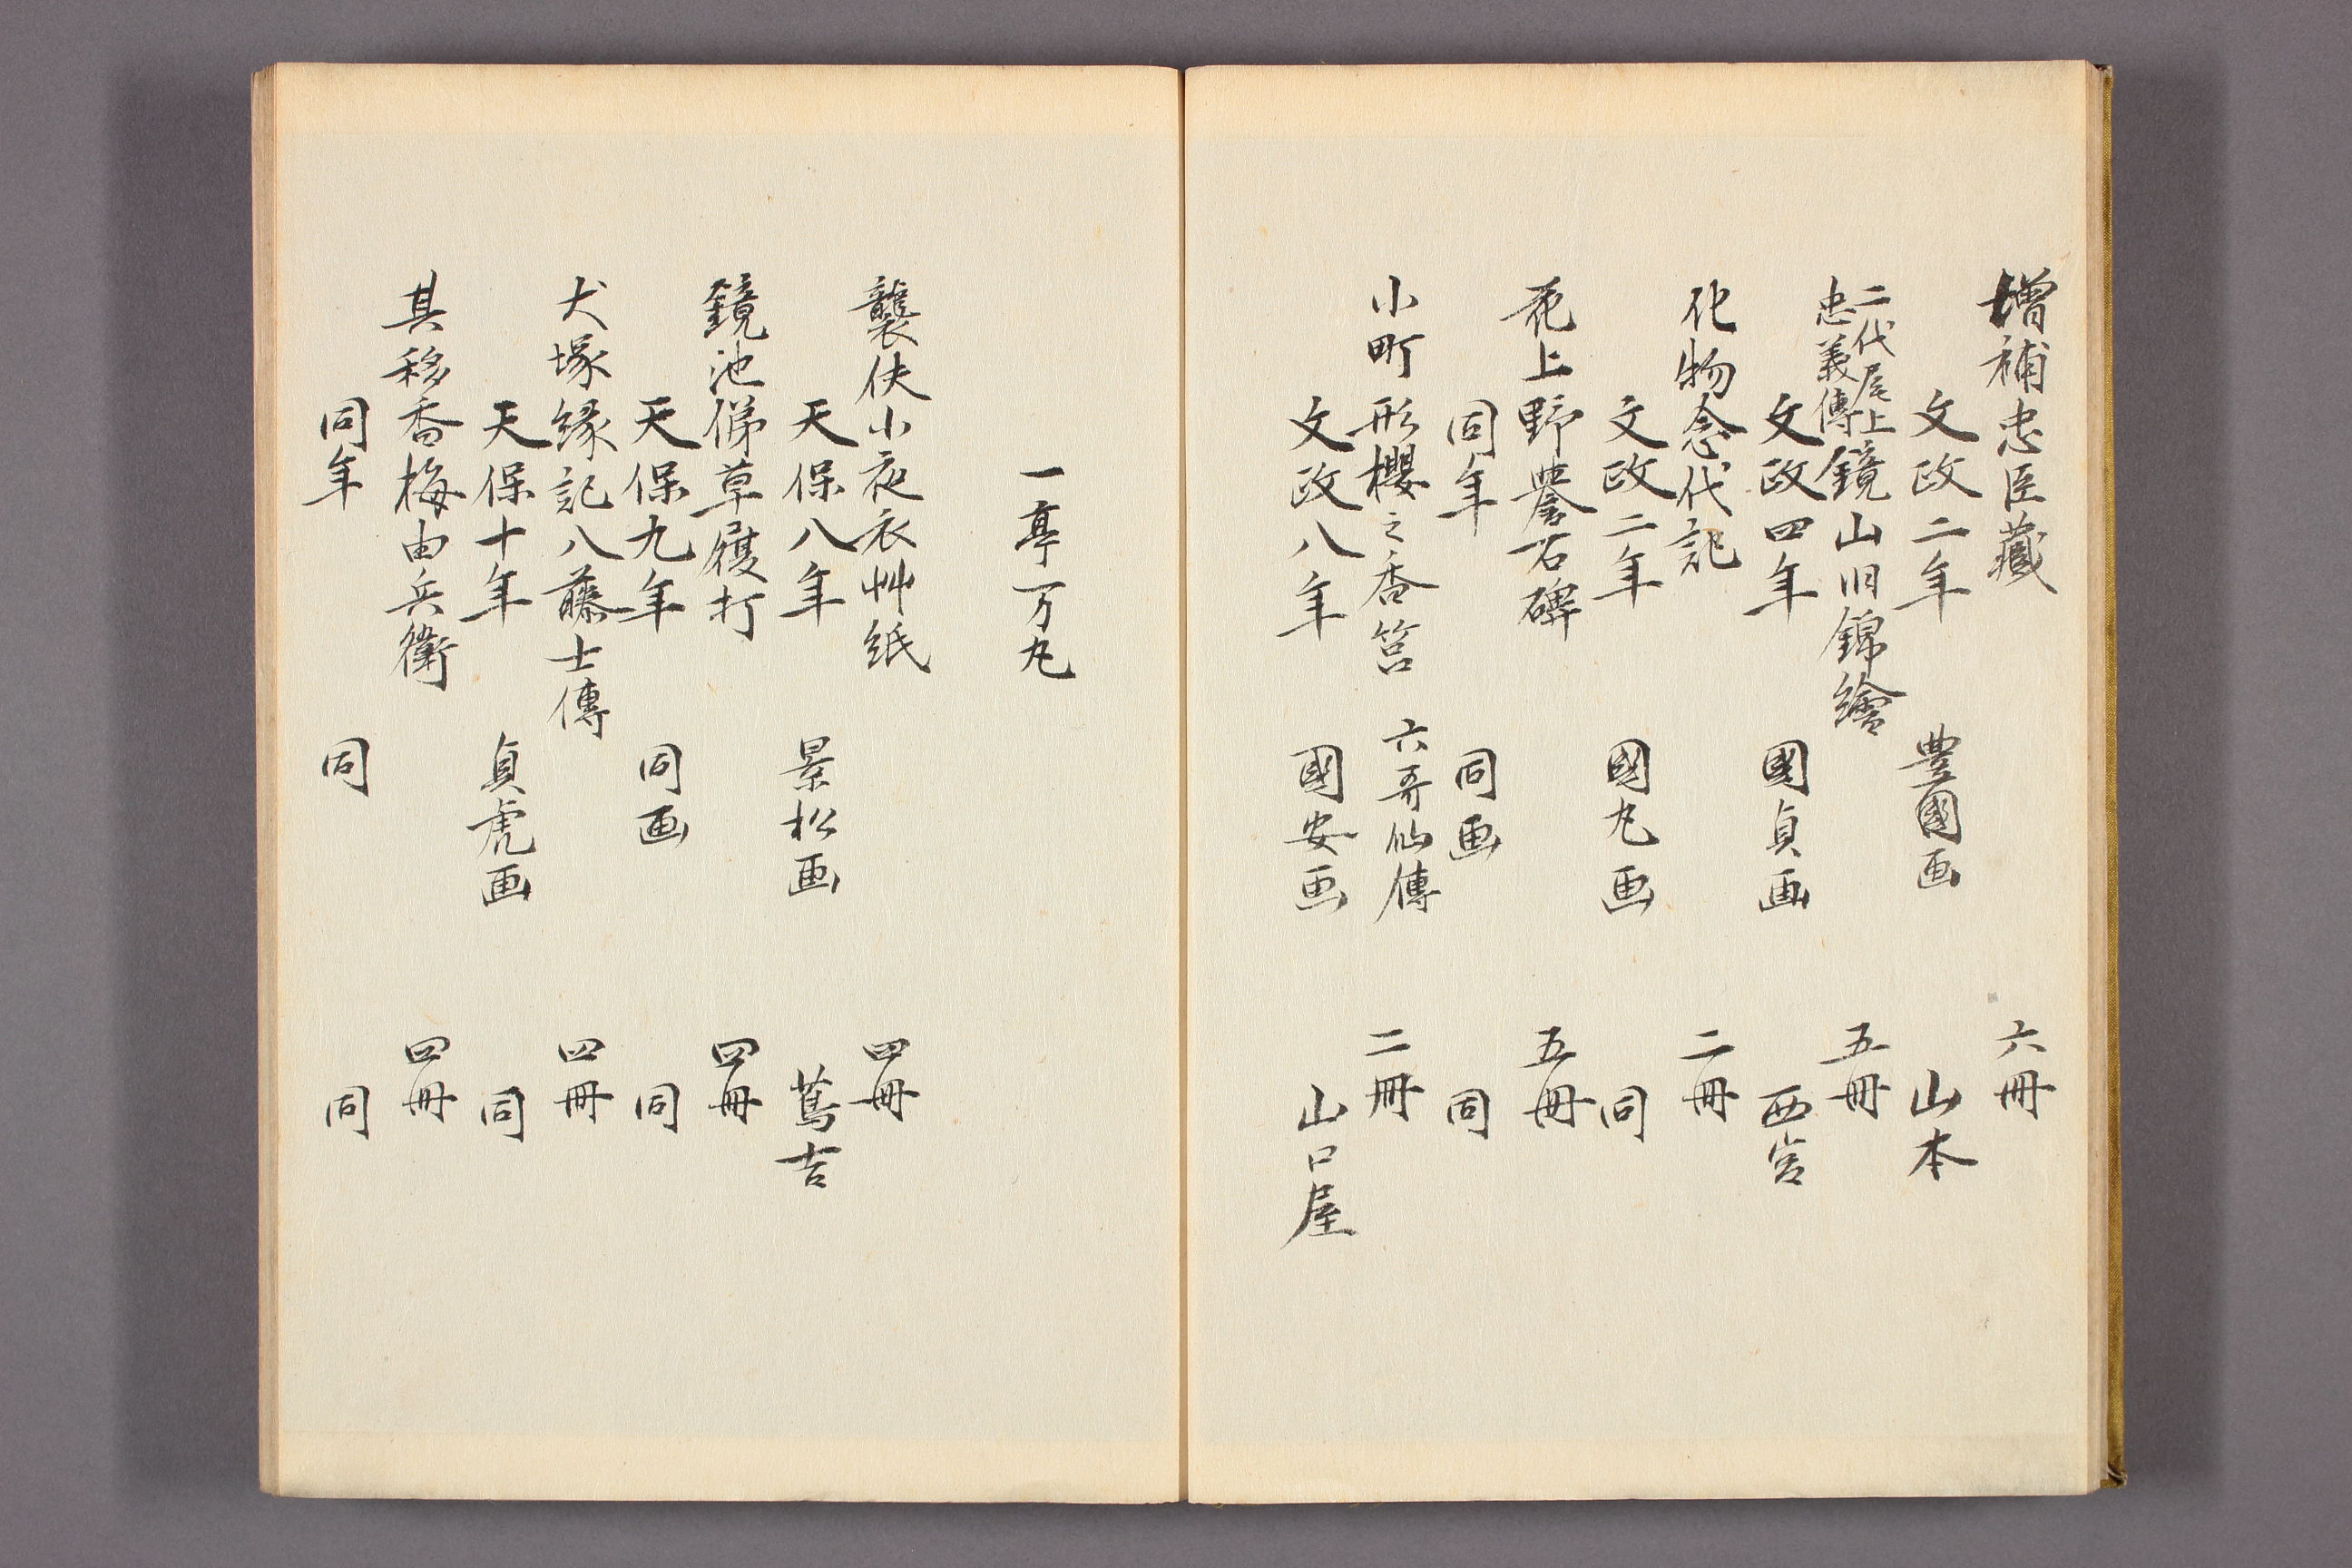 増補忠臣藏 六冊
文政二年 豊國画 山本
二代尾上
忠義傳
鏡山旧錦繪 五冊
文政四年 國貞画 西宮
化物念代記 二冊
文政二年 國丸画 同
花上野譽石碑 五冊
同年 同画 同
小町形櫻之香筥 六哥仙傳 二冊
文政八年 國安画 山口屋
一亭万丸
襲伏小夜衣艸紙 四冊
天保八年 景松画 蔦吉
鏡池俤草履打 四冊
天保九年 同画 同
犬塚縁記八藤士傳 四冊
天保十年 貞虎画 同
其移香梅由兵衛 四冊
同年 同 同